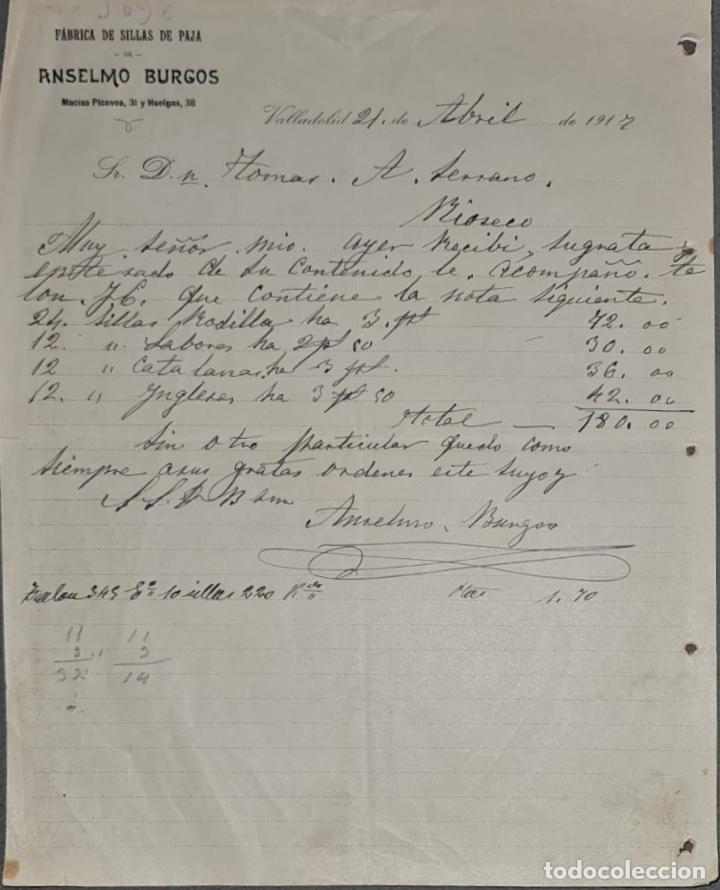 FÁBRICA DE SILLAS DE PAJA
DE
ANSELMO BURGOS
Macias Picavea, 31 y Huelgas, 38
Valladolid 21. de Abril de 1917
Sr. D.n. Tomas. A. Serrano.
Rioseco
Muy Señor mio. ayer Recibi, sugrata y
enterado de Su Contenido le. acompaño. ta
lon. F.C. que contiene la nota siguiente.
24. sillas Rodilla ha 3. pt 72.00
12. " Labores ha 2 pt 50 30.00
12 " Catalanas. ha 3 pt. 36.00
12. " Inglesas ha 3 pt 50 42.00
total — 180.00
Sin otro particular quedo como
siempre asus gratas ordenes este suyo y
S. S. Q B s m
Anselmo. Burgos
Talon 345 10 sillas 220 1.70
11 11
3 3
32 14
todocoleccion.net